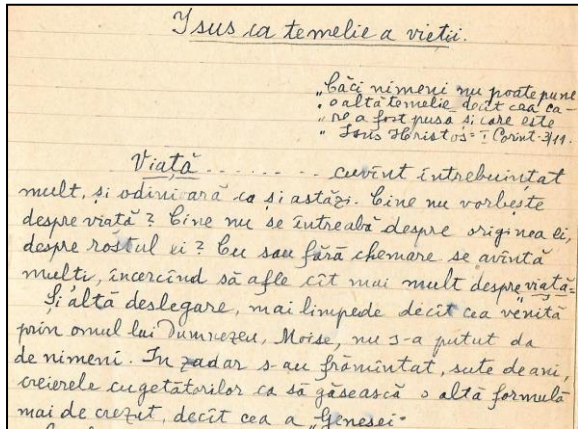 Isus ca temelie a vieții.
„Căci nimeni nu poate pune
„o altă temelie decît cea ca-
„re a fost pusă și care este
„Isus Hristos" I Corint-3/11.
Viață ......... cuvînt întrebuințat
mult, și odinioară ca și astăzi. Cine nu vorbește
despre viață? Cine nu se întreabă despre originea ei,
despre rostul ei? Cu sau fără chemare se avîntă
mulți, încercînd să afle cît mai mult despre viață-
Și altă deslegare, mai limpede decît cea venită
prin omul lui Dumnezeu, Moise, nu s-a putut da
de nimeni. In zadar s-au frămîntat, sute de ani,
creierele cugetătorilor ca să găsească o altă formulă
mai de crezut, decît cea a „Genesei"